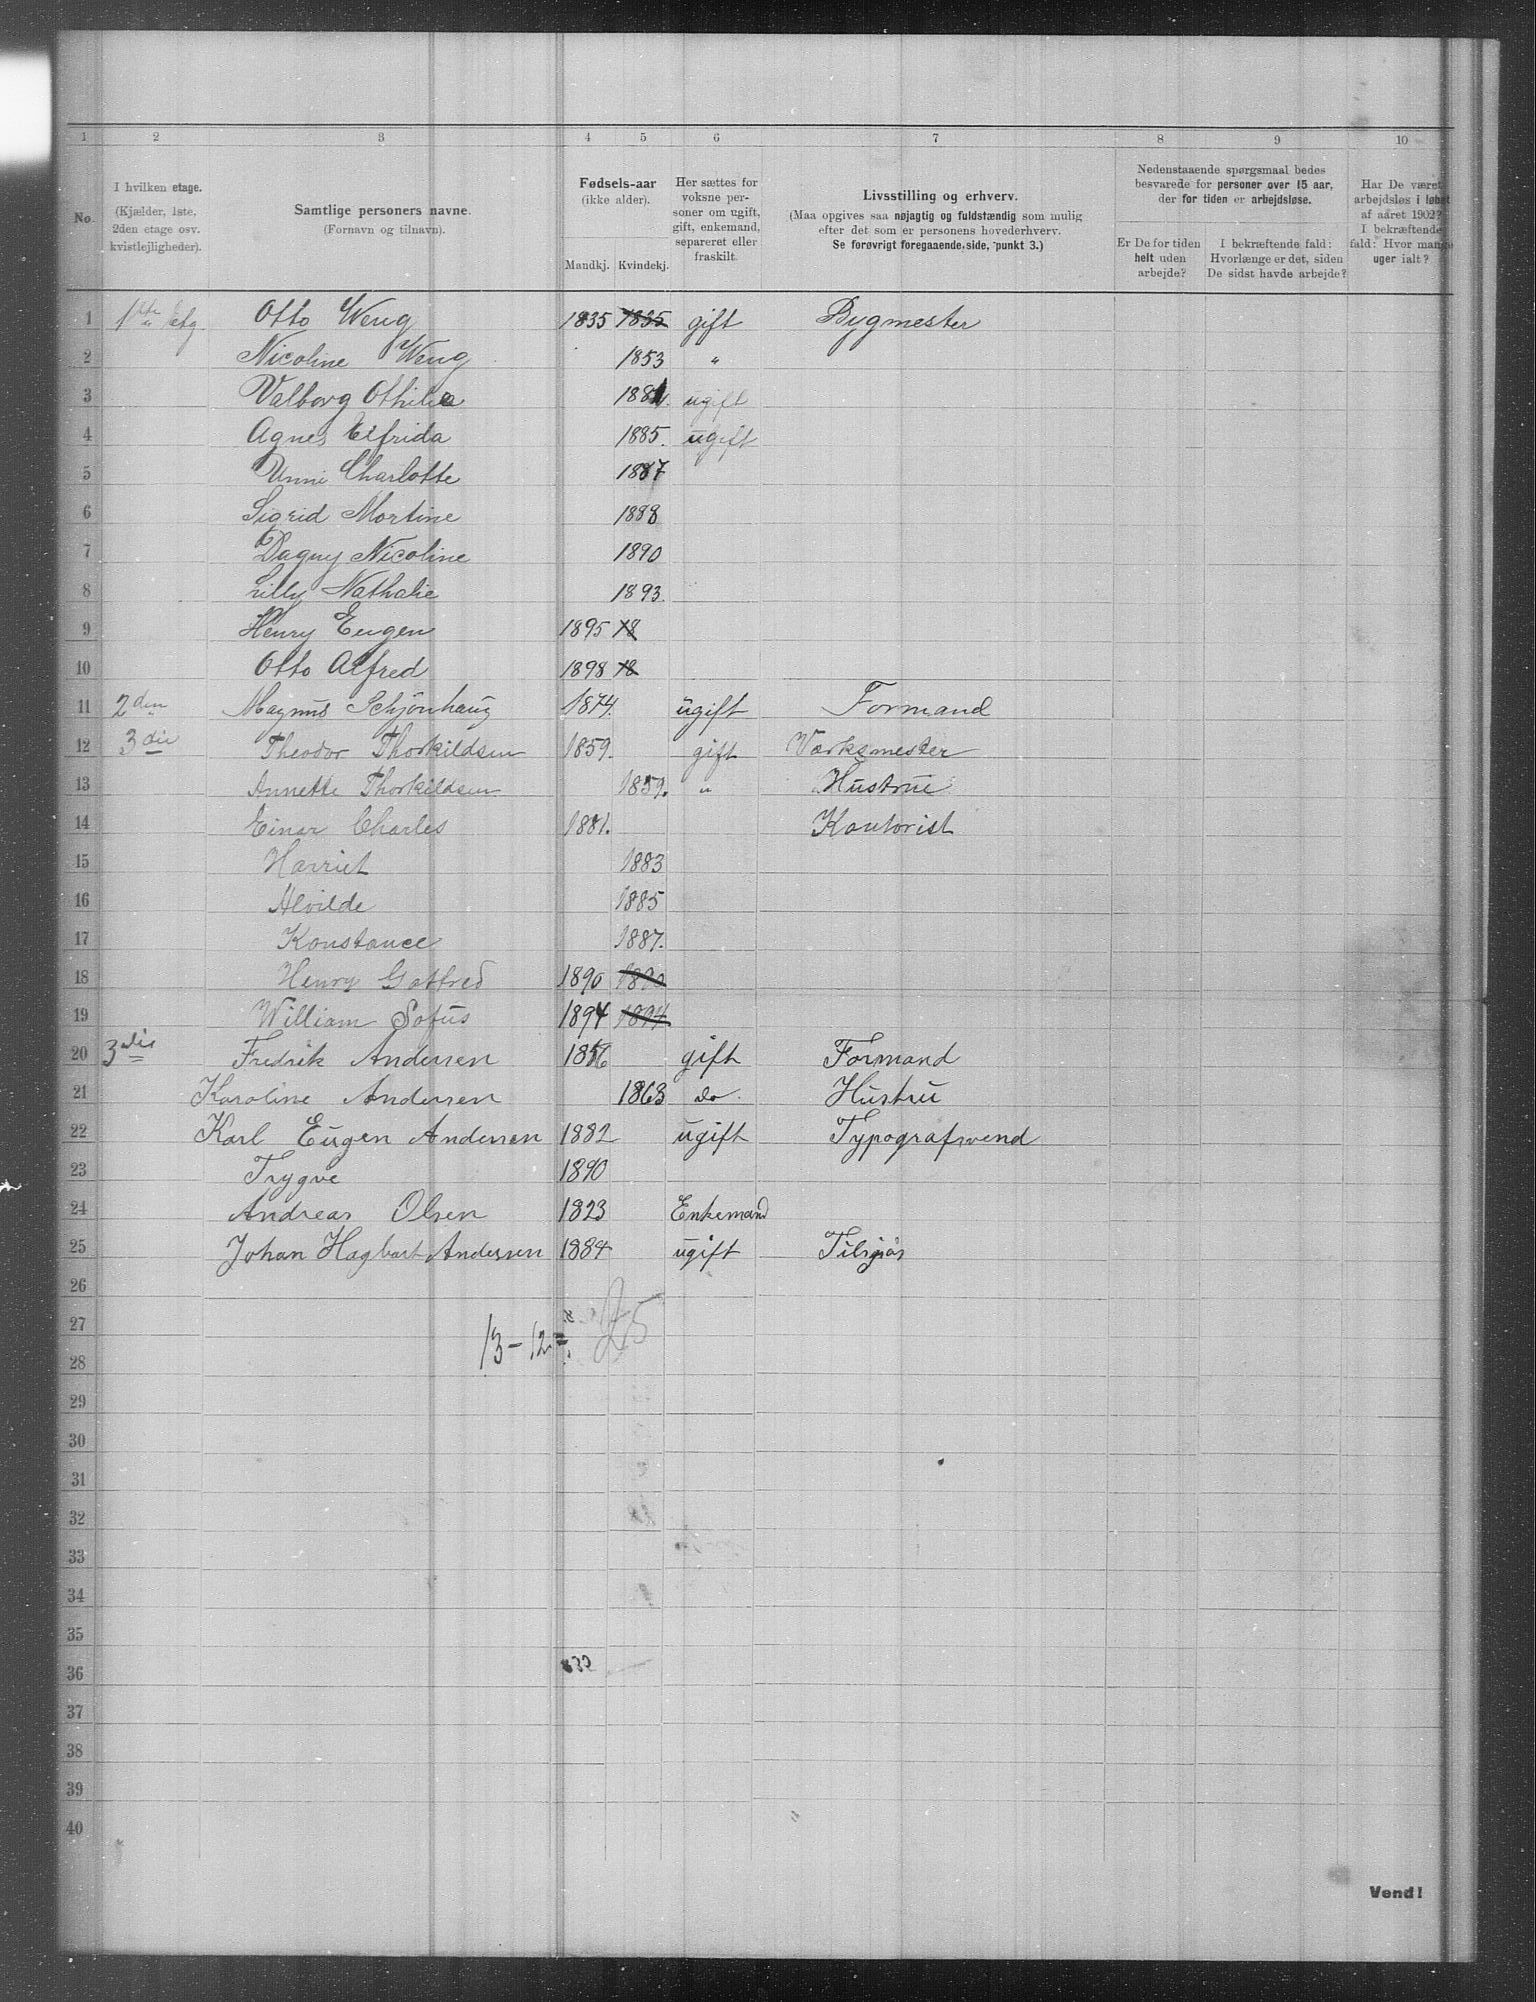 1 2 3 4 5 6 7 8 9 10
No. I hvilken etage. (Kjælder, 1ste, 2den etage osv. kvistlejligheder). Samtlige personers navne. (Fornavn og tilnavn). Fødsels-aar (ikke alder). Mandkj. Kvindekj. Her sættes for voksne personer om ugift, gift, enkemand, separeret eller fraskilt. Livsstilling og erhverv. (Maa opgives saa nøjagtig og fuldstændig som mulig efter det som er personens hovederhverv. Se forøvrigt foregaaende side, punkt 3.) Nedenstaaende spørgsmaal bedes besvarede for personer over 15 aar, der for tiden er arbejdsløse. Er De for tiden helt uden arbejde? I bekræftende fald: Hvorlænge er det, siden De sidst havde arbejde? Har De været arbejdsløs i løbet af aaret 1902? I bekræftende fald: Hvor mange uger ialt?
1 1ste etg Otto Weng 1835 1835 gift Bygmester
2 Nicoline Weng 1853 "
3 Valborg Othilia ugift
4 Agnes Elfrida 1885. ugift
5 Unni Charlotte 1887
6 Sigrid Martine 1888
7 Dagny Nicoline 1890
8 Lilly Nathalie 1893.
9 Henry Eugen 1895 18
10 Otto Alfred 1898 18
11 2den Magnus Schjönhaug 1874. ugift Formand
12 3die Theodor Thorkildsen 1859. gift Værksmester
13 Annette Thorkildsen 1859. " Hustrue
14 Einar Charles 1881. Kontorist
15 Harriet 1883
16 Alvilde 1885
17 Konstance 1887.
18 Henry Gotfred 1890 1890
19 William Sofus 1894 1894
20 3die Fredrik Andersen gift Formand
21 Karoline Andersen 1863 do Hustru
22 Karl Eugen Andersen 1882 ugift Typografsvend
23 Trygve 1890
24 Andreas Olsen 1823 Enkemand
25 Johan Hagbart Andersen 1884 ugift Tilsjøs
26
27
13-12= 25
28
29
30
31
32
33
34
35
36
37
38
39
40
Vend!